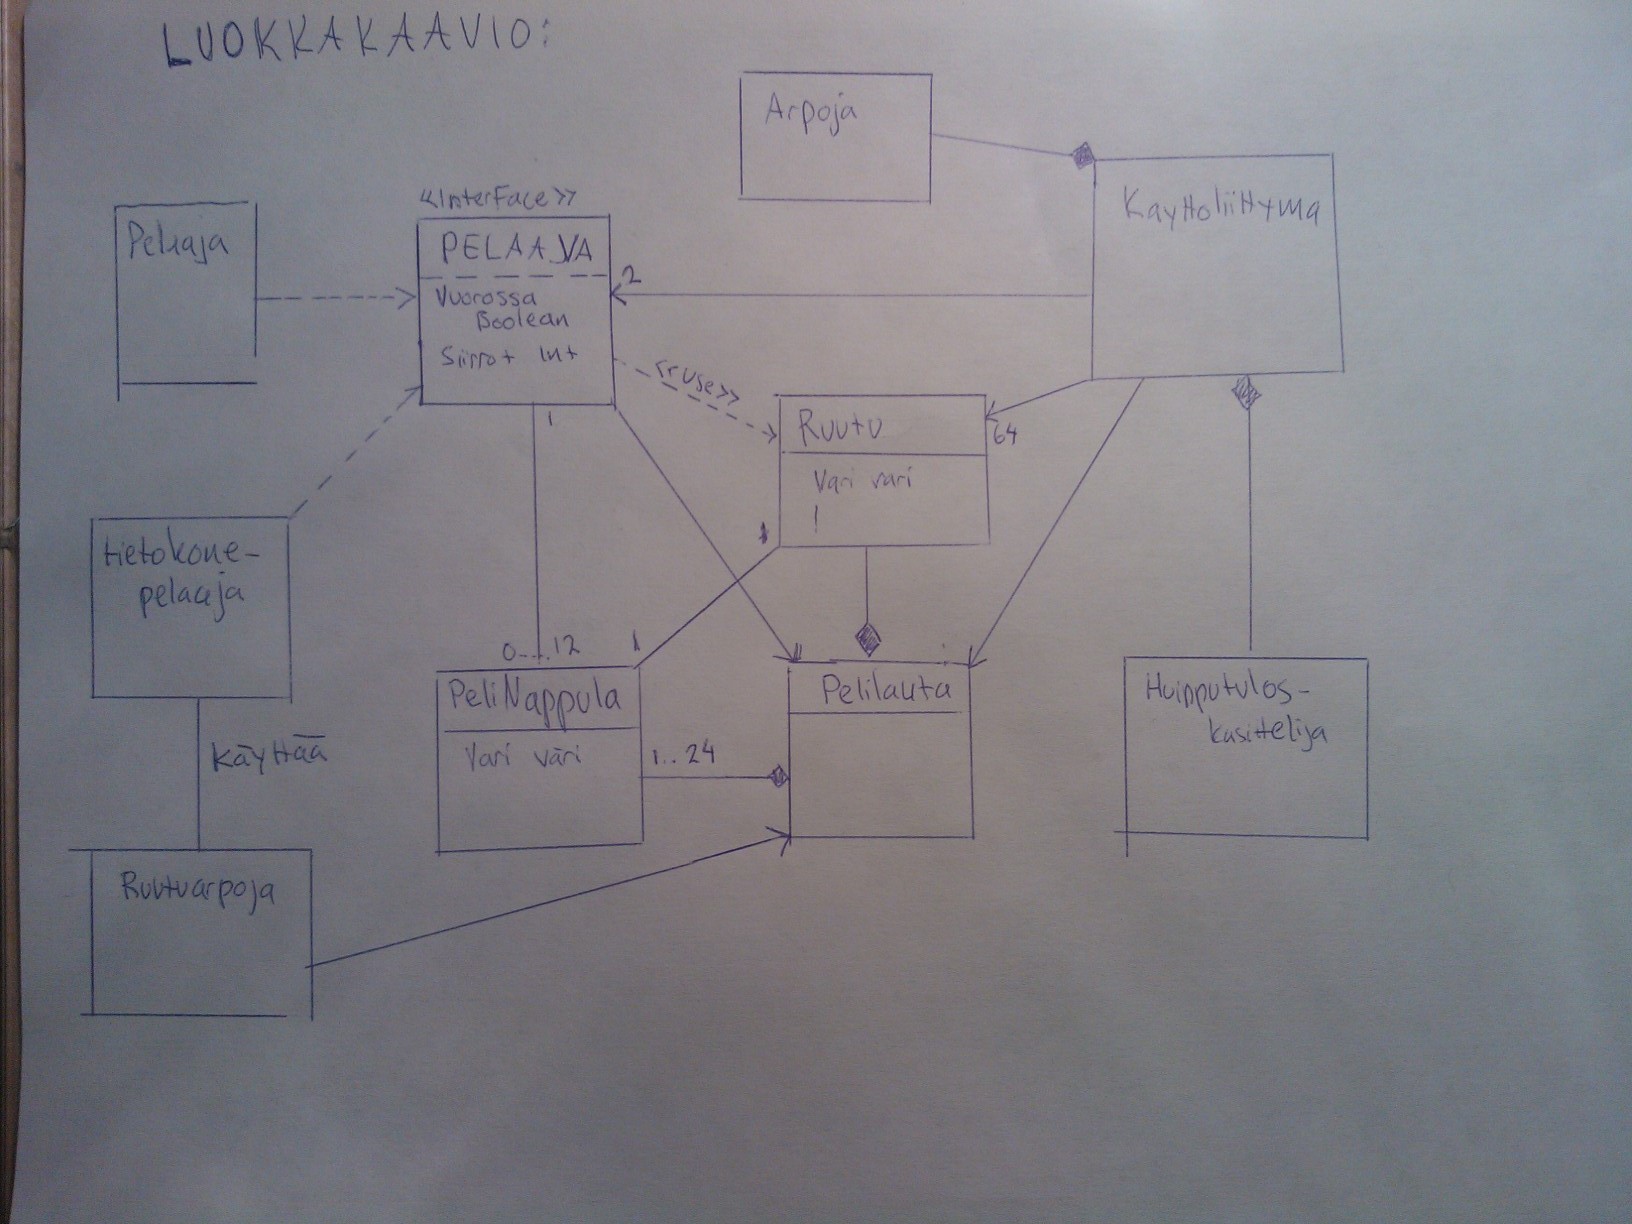 LUOKKAKAAVIO:
Arpoja
Kayttoliittyma
<<Interface>>
Pelaaja
PELAAJA
2
Vuorossa
Boolean
Siirrot Int
<<use>>
1
Ruutu
64
Vari vari
tietokone-
pelaaja
1
0....12
PeliNappula
Vari väri
1..24
Pelilauta
Huipputulos-
kasittelija
Käyttää
Ruutuarpoja